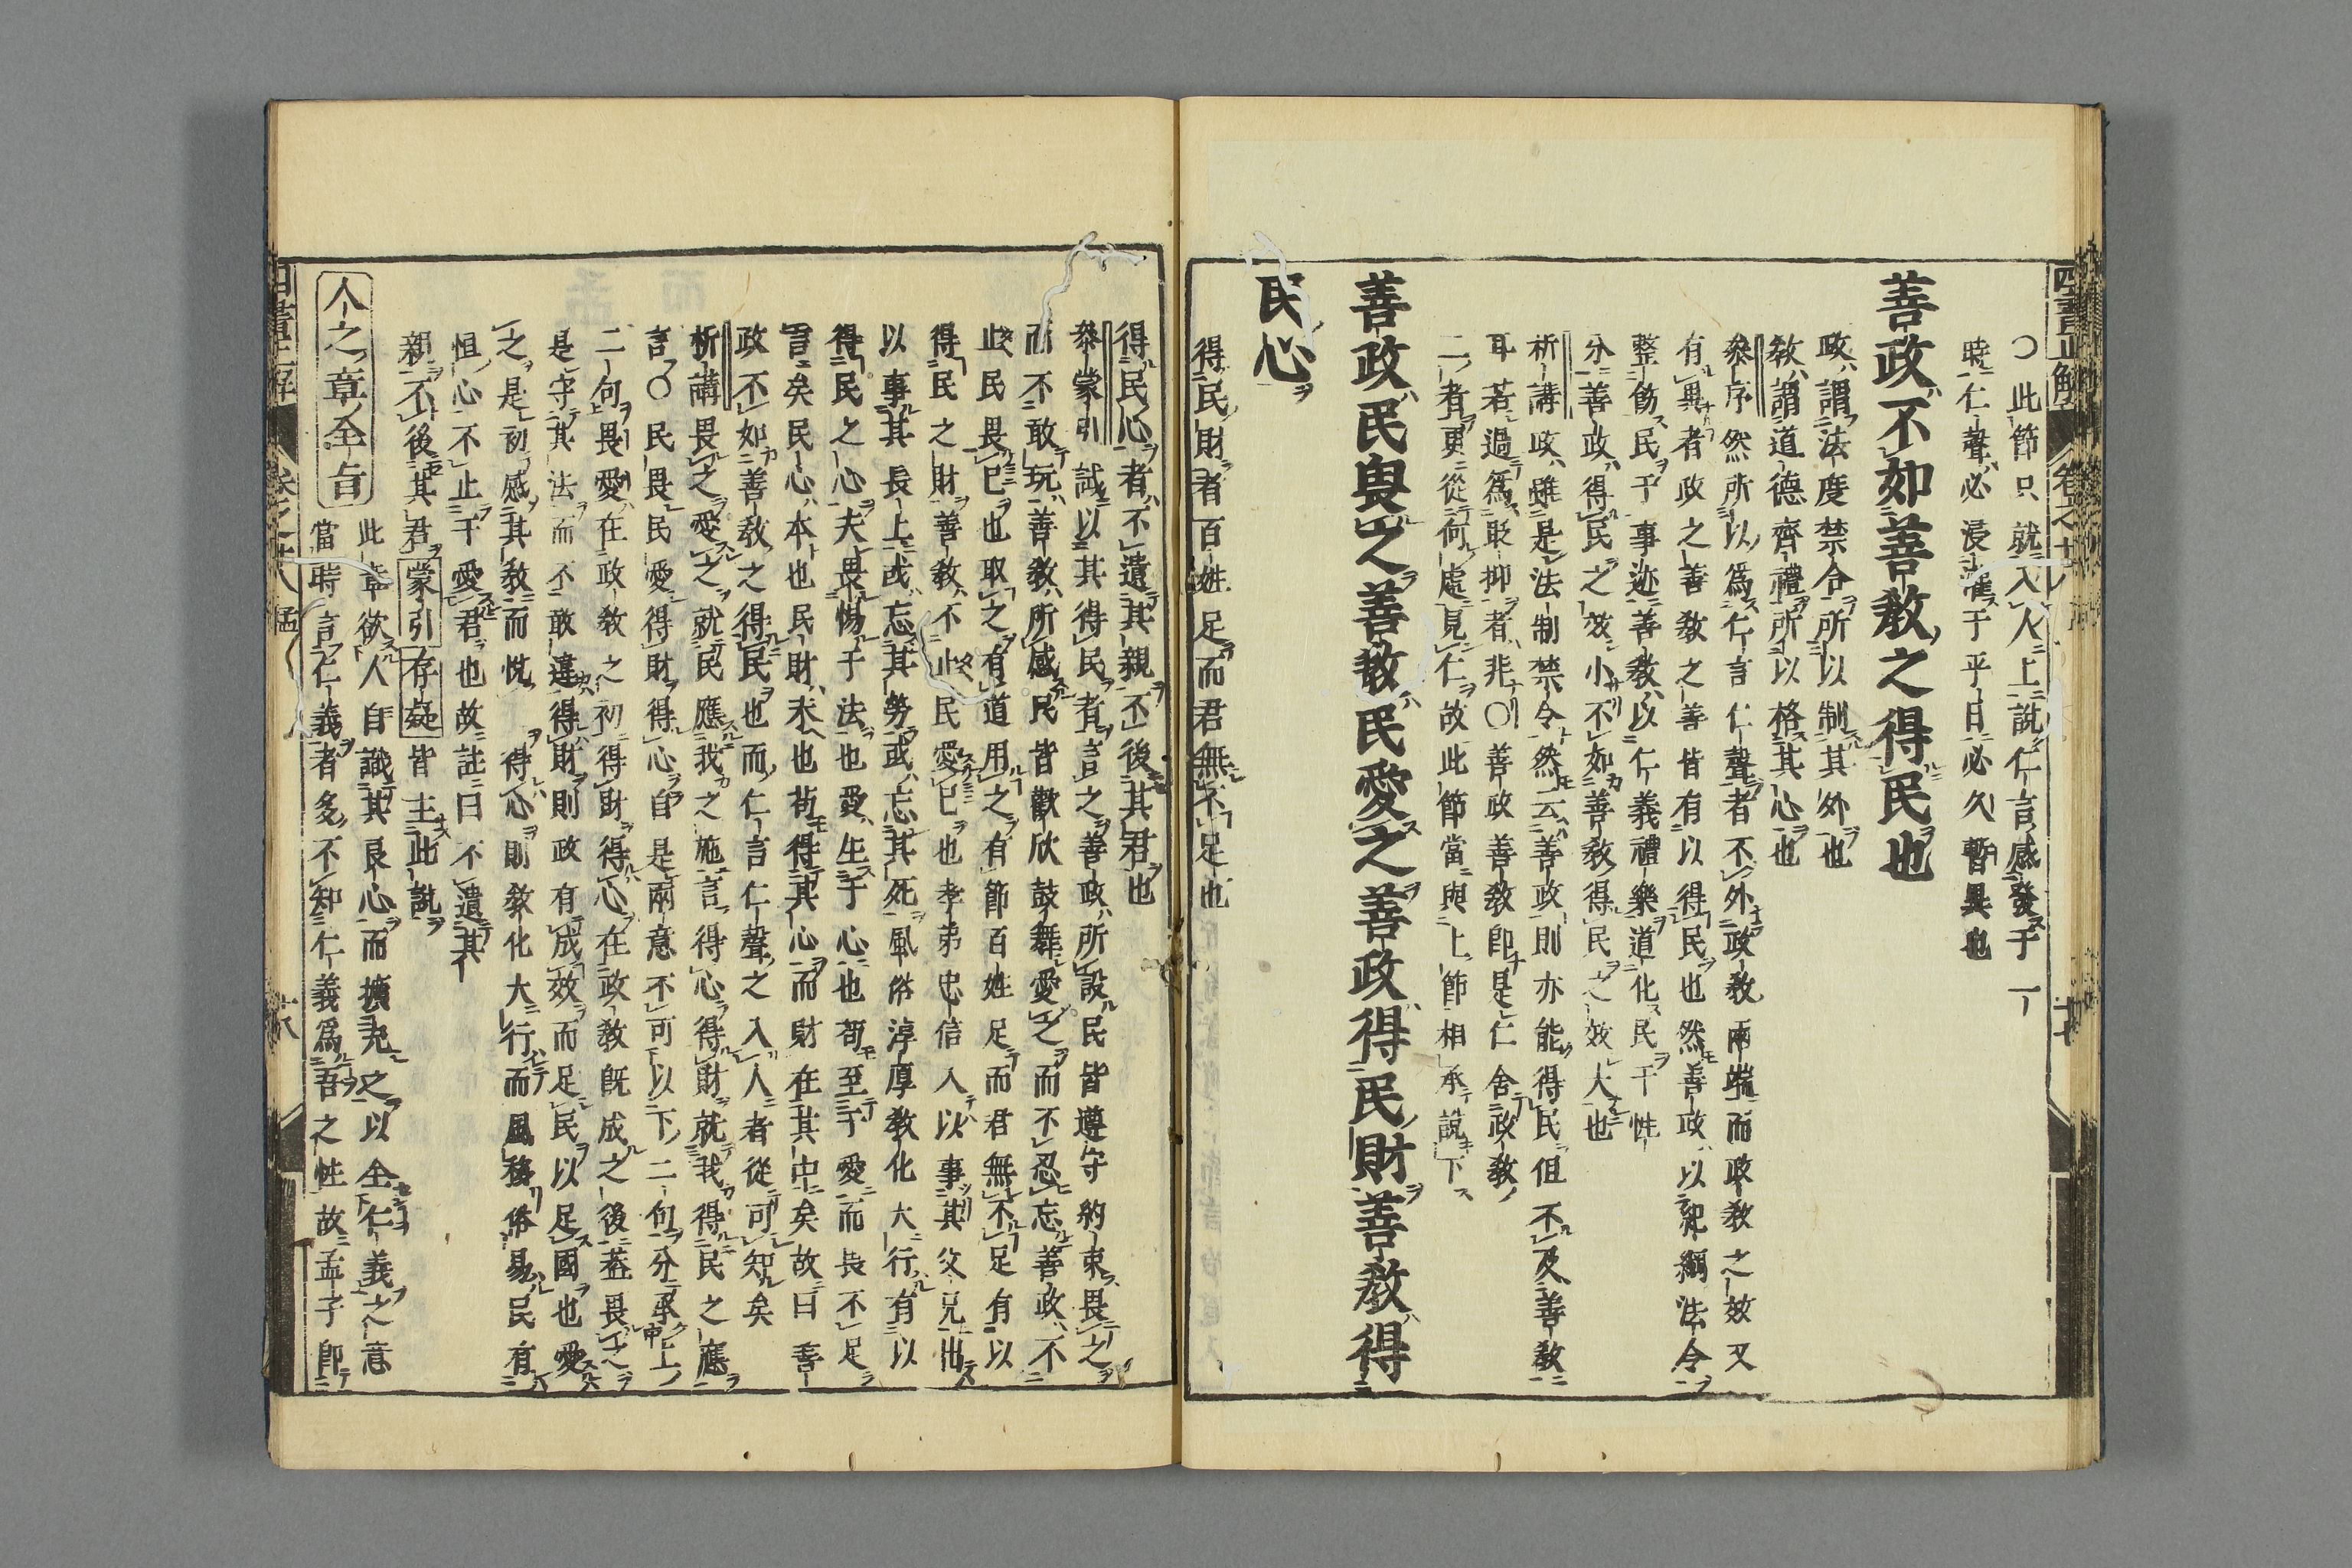 四書正解
卷之廿八
〇此節只就入人上說仁言感發于一
時仁聲必浸灌于平日必久暫異也
善政不如善教之得民也
政謂法度禁令所以制其外也
教謂道德齊禮所以格其心也
參序然所以為仁言仁聲者不外政教兩端而政教之效又
有異者政之善教之善皆有以得民也然善政以紀綱法令
整飭民于事迹善教以仁義禮樂道化民于性
分善政得民之效小不如善教得民之效大也
析講政雖是法制禁令然云善政則亦能得民但不及善教
耳若過為貶抑者非〇善政善教即是仁舍政教
二者更從何處見仁故此節當與上節相承說下
善政民畏之善教民愛之善政得民財善教得
民心
得民財者百姓足而君無不足也
得民心者不遺其親不後其君也
參蒙引試以其得民者言之善政所設民皆遵守約束畏之
而不敢玩善教所感民皆歡欣鼓舞愛之而不忍忘善政不
止民畏已也取之有道用之有節百姓足而君無不足有以
得民之財善教不止民愛已也孝弟忠信入以事其父兄出
以事其長上或忘其勞或忘其死風俗淳厚教化大行有以
得民之心夫畏惕于法也愛生于心也苟至于愛而畏不足
言矣民心本也民財末也苟得其心而財在其中矣故曰善
政不如善教之得民也而仁言仁聲之入人者從可知矣
析講畏之愛之就民應我之施言得心得財就我得民之應
言〇民畏民愛得財得心自是兩意不可以下二句分承上
二句畏愛在政教之初得財得心在政教既成之後蓋畏之
是守其法而不敢違得財則政有成效而足民以足國也愛
之是初感其教而悅得心則教化大行而風移俗易民有
恒心不止于愛君也故註曰不遺其
親不後其君蒙引存疑皆主此說
人之章全旨
此章欲人自識其良心而擴充之以全仁義之意
當時言仁義者多不知仁義為吾之性故孟子即
卷之廿八 孟
十八